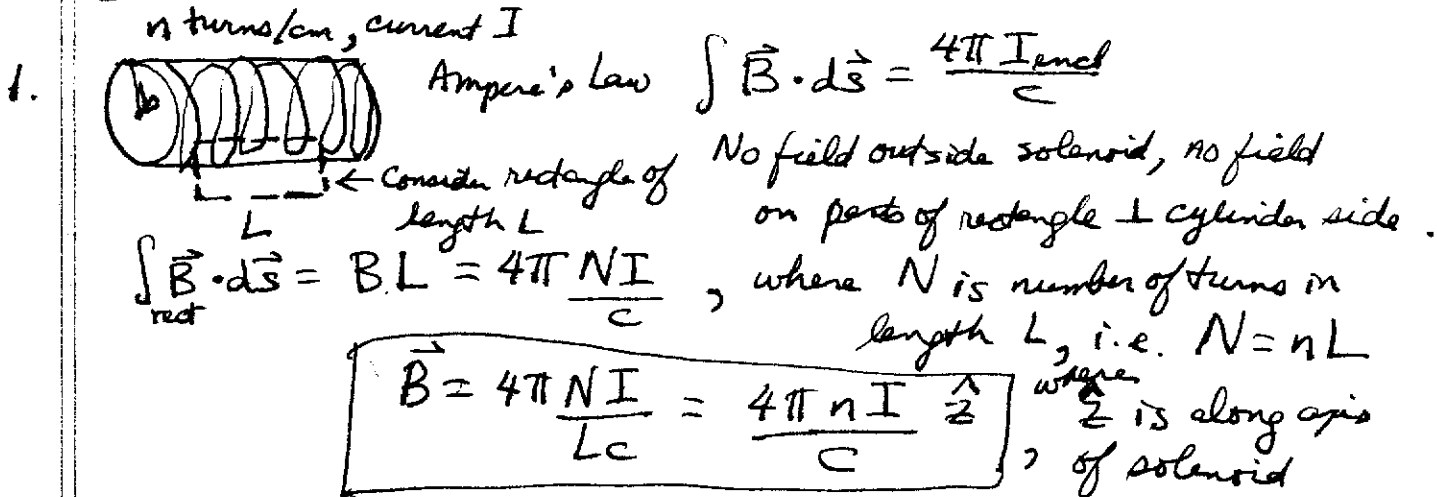 n turns/cm, current I
1. b Ampere's Law ∫ B⃗ · ds⃗ = 4π Iencl / c
← Consider rectangle of length L
L
No field outside solenoid, no field
on parts of rectangle ⊥ cylinder side.
∫rect B⃗ · ds⃗ = BL = 4π NI / c , where N is number of turns in
length L, i.e. N = nL
B⃗ = 4π NI / Lc = 4π n I / c ẑ , where ẑ is along axis
of solenoid